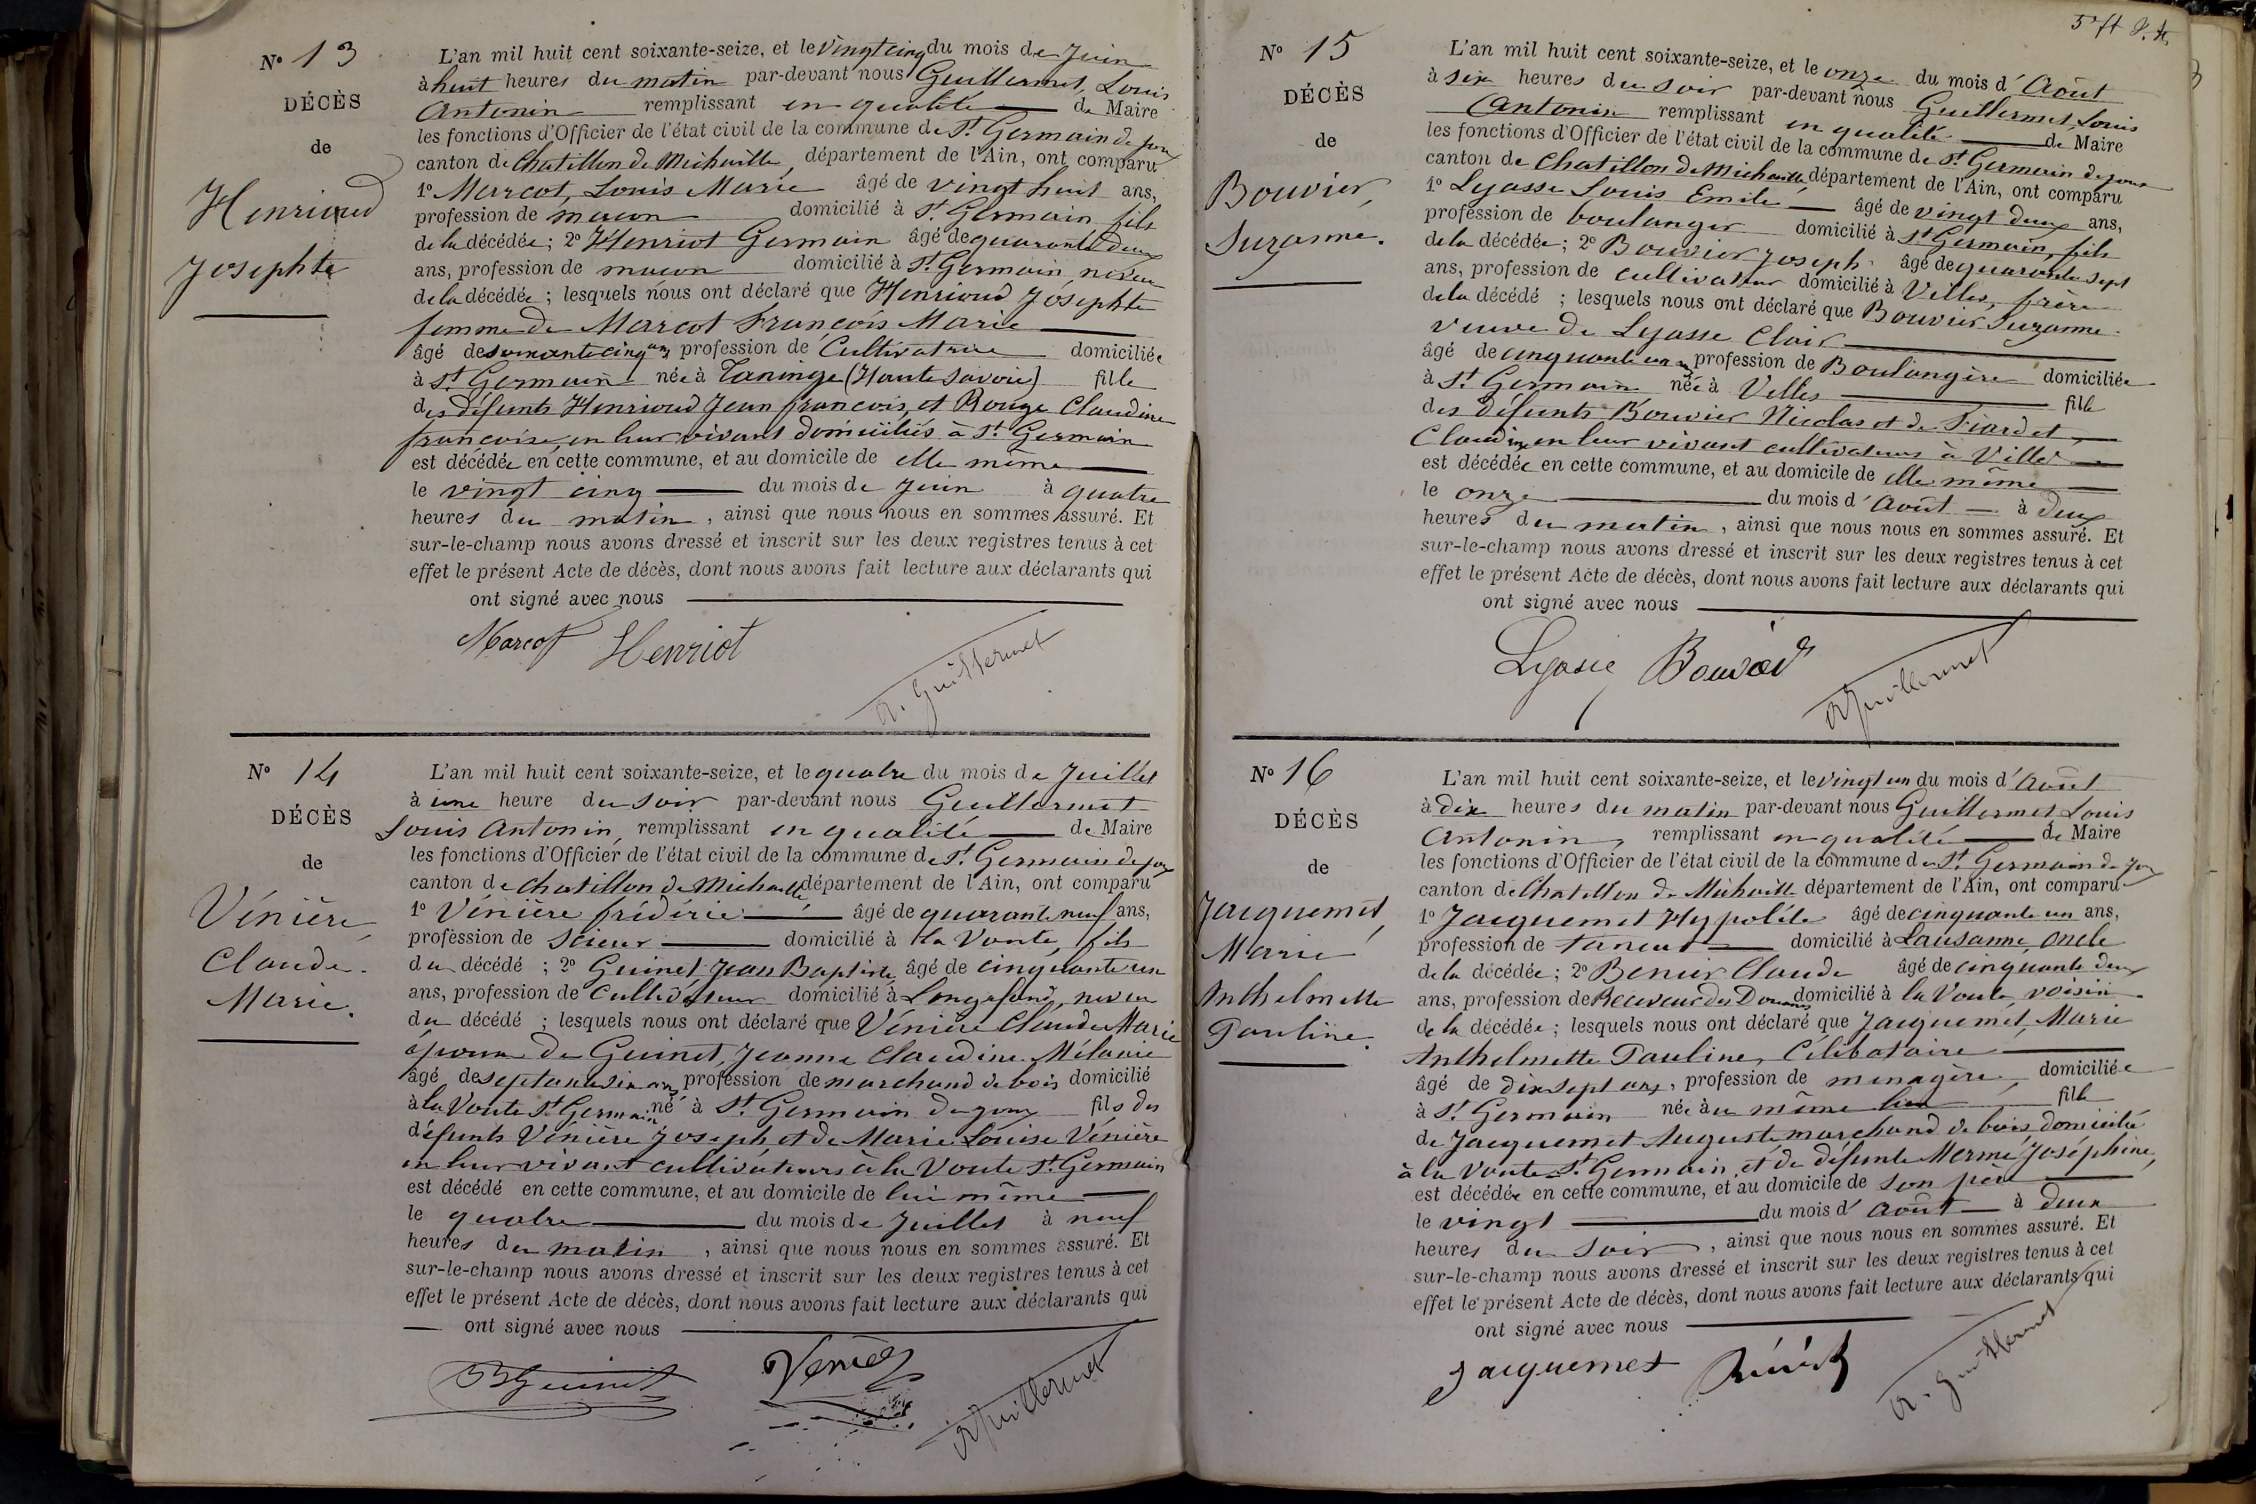 N° 13
DÉCÈS
de
Henrioud
Josephte
L'an mil huit cent soixante-seize, et le vingt cinq du mois de Juin
à huit heures du matin par-devant nous Guillermet, Louis
Antonin remplissant en qualité de Maire
les fonctions d'Officier de l'état civil de la commune de St Germain de joux
canton de Chatillon de Michaille, département de l'Ain, ont comparu
1° Marcot, Louis Marie âgé de vingt huit ans,
profession de maçon domicilié à St Germain fils
de la décédée; 2° Henriot Germain âgé de quarante deux
ans, profession de maçon domicilié à St Germain, neveu
de la décédée; lesquels nous ont déclaré que Henrioud Josephte
femme de Marcot François Marie
âgé de soixante cinq ans profession de Cultivatrice domiciliée
à St Germain née à Taninge (Haute Savoie) fille
des défunts Henrioud Jean françois, et Rouge Claudine
françoise, en leur vivant domiciliés à St Germain
est décédée en cette commune, et au domicile de elle même
le vingt cinq du mois de Juin à quatre
heures du matin, ainsi que nous nous en sommes assuré. Et
sur-le-champ nous avons dressé et inscrit sur les deux registres tenus à cet
effet le présent Acte de décès, dont nous avons fait lecture aux déclarants qui
ont signé avec nous
Marcot Henriot
A. Guillermet
N° 14
DÉCÈS
de
Vénière,
Claude.
Marie.
L'an mil huit cent soixante-seize, et le quatre du mois de Juillet
à une heure du soir par-devant nous Guillermet
Louis Antonin, remplissant en qualité de Maire
les fonctions d'Officier de l'état civil de la commune de St Germain de joux
canton de Chatillon de Michaille département de l'Ain, ont comparu
1° Vénière frédéric âgé de quarante neuf ans,
profession de Scieur domicilié à la Voute, fils
du décédé ; 2° Guinet Jean Baptiste âgé de cinquante un
ans, profession de Cultivateur domicilié à Longefand, neveu
du décédé ; lesquels nous ont déclaré que Vénière Claude Marie
époux de Guinet, Jeanne Claudine Mélanie
âgé de septante six ans profession de marchand de bois domicilié
à la Voute St Germain né à St Germain de joux fils des
défunts Vénière Joseph et de Marie Louise Vénière
en leur vivant cultivateurs à la Voute St Germain
est décédé en cette commune, et au domicile de lui même
le quatre du mois de Juillet à neuf
heures du matin, ainsi que nous nous en sommes assuré. Et
sur-le-champ nous avons dressé et inscrit sur les deux registres tenus à cet
effet le présent Acte de décès, dont nous avons fait lecture aux déclarants qui
ont signé avec nous
BGuinet
A Guillermet
N° 15
DÉCÈS
de
Bouvier,
Suzanne.
L'an mil huit cent soixante-seize, et le onze du mois d'Août
à six heures du soir par-devant nous Guillermet Louis
Antonin remplissant en qualité de Maire
les fonctions d'Officier de l'état civil de la commune de St Germain de joux
canton de Chatillon de Michaille, département de l'Ain, ont comparu
1° Lyasse Louis Emile âgé de vingt deux ans,
profession de boulanger domicilié à St Germain, fils
de la décédée; 2° Bouvier Joseph âgé de quarante sept
ans, profession de cultivateur domicilié à Villes, frère
de la décédé ; lesquels nous ont déclaré que Bouvier Suzanne
veuve de Lyasse Clair
âgé de cinquante un ans profession de Boulangère domiciliée
à St Germain née à Villes fille
des défunts Bouvier Nicolas et de Fiardet,
Claudine en leur vivant cultivateurs à Villes
est décédée en cette commune, et au domicile de elle même
le onze du mois d'Août à deux
heures du matin, ainsi que nous nous en sommes assuré. Et
sur-le-champ nous avons dressé et inscrit sur les deux registres tenus à cet
effet le présent Acte de décès, dont nous avons fait lecture aux déclarants qui
ont signé avec nous
A Guillermet
N° 16
DÉCÈS
de
Jacquemet,
Marie
Anthelmette
Pauline.
L'an mil huit cent soixante-seize, et le vingt un du mois d'Août
à dix heures du matin par-devant nous Guillermet Louis
Antonin, remplissant en qualité de Maire
les fonctions d'Officier de l'état civil de la commune de St Germain de joux
canton de Chatillon de Michaille département de l'Ain, ont comparu
1° Jacquemet Hypolite âgé de cinquante un ans,
profession de taneur domicilié à Lausanne, oncle
de la décédée; 2° Benier Claude âgé de cinquante deux
ans, profession de Receveur des Douanes domicilié à la Voute, voisin
de la décédée; lesquels nous ont déclaré que Jacquemet, Marie
Anthelmette Pauline, Célibataire
âgé de dix sept ans, profession de menagère, domiciliée
à St Germain née à même lieu fille
de Jacquemet Auguste marchand de bois domicilié
à la Voute St Germain, et de défunte Mermé Joséphine,
est décédée en cette commune, et au domicile de son père
le vingt du mois d'Août à deux
heures du soir, ainsi que nous nous en sommes assuré. Et
sur-le-champ nous avons dressé et inscrit sur les deux registres tenus à cet
effet le présent Acte de décès, dont nous avons fait lecture aux déclarants qui
ont signé avec nous
Jacquemet
A. Guillermet